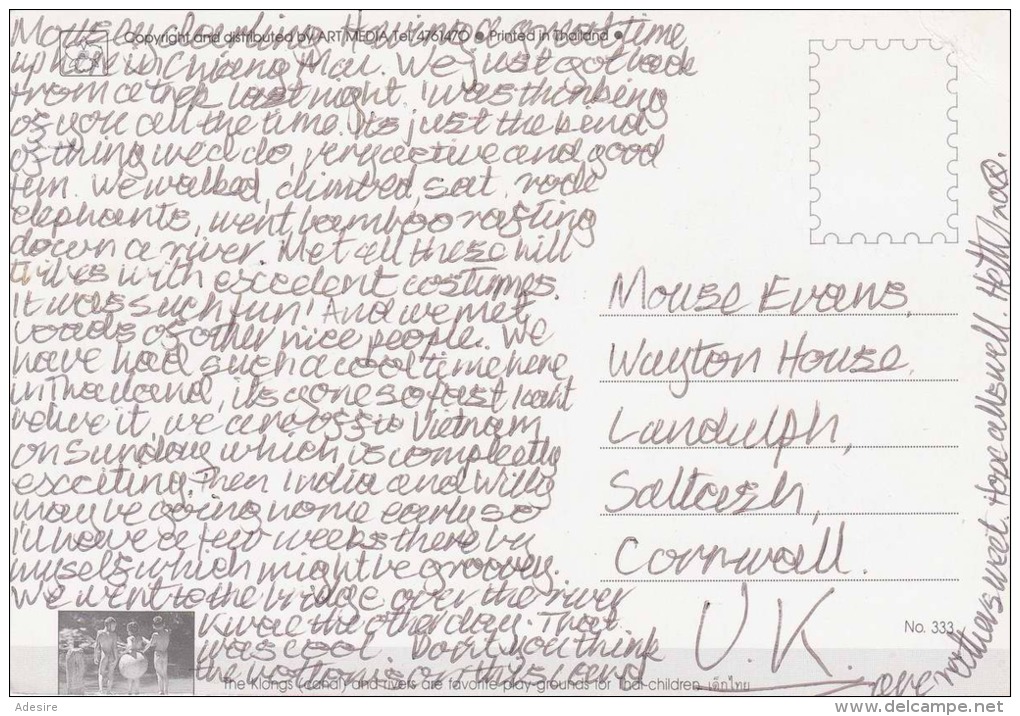 Mouse my darling. Having a great time
up here in Chiang Mai. We just got back
from a trek last night, I was thinking
of you all the time. Its just the kind
of thing we'd do, very active and good
fun. We walked, climbed, sat, rode
elephants, went bamboo rafting
down a river. Met all these hill
tribes with excellent costumes.
It was such fun! And we met
loads of other nice people. We
have had such a cool time here
in Thailand, its gone so fast I cant
believe it, we are off to Vietnam
on Sunday which is completly
exciting. Then India and Willy
may be going home early so
I'll have a few weeks there by
myself which might be groovy.
We went to the bridge over the river
Kwae the other day. That
was cool. Dont you think
the bottoms on this card
are rather sweet. Hope all is well.
Copyright and distributed by ART MEDIA Tel. 4761470 ● Printed in Thailand ●
Mouse Evans,
Wayton House,
Landulph,
Saltash,
Cornwall.
U.K.
No. 333
The Klongs (canal) and rivers are favorite play-grounds for Thai children เด็กไทย
Adesire
delcampe.net